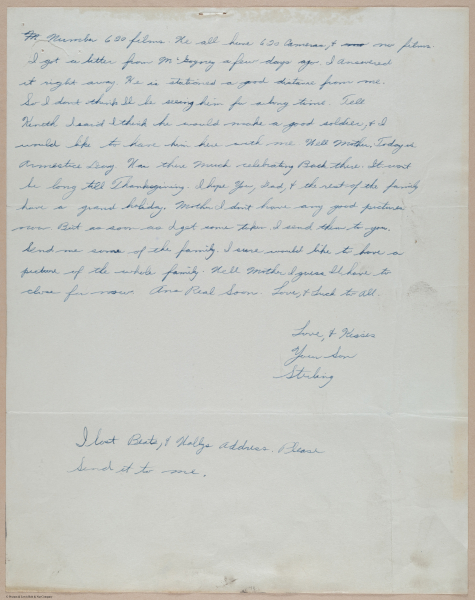 Number 620 films. We all have 620 Cameras, & no films
I got a letter from McGregory a few days ago. I answered
it right away. He is stationed a good distance from me.
So I don't think I'll be seeing him for a long time. Tell
Kenneth I said I think he would make a good soldier, & I
would like to have him here with me. Well Mother, Today is
Armestice Day. Was there Much celebrating Back there. It wont
be long till Thanksgiving. I hope You, Dad, & the rest of the family
have a grand holiday. Mother I don't have any good pictures
now But as soon as I get some taken I send them to you.
Send me some of the family. I sure would like to have a
picture of the whole family. Well Mother I guess I'll have to
close for now. Ans Real Soon. Love, & Luck to All.
Love, & Kisses
Your Son
Sterling
I lost Beats, & Wallys Address. Please
Send it to me.